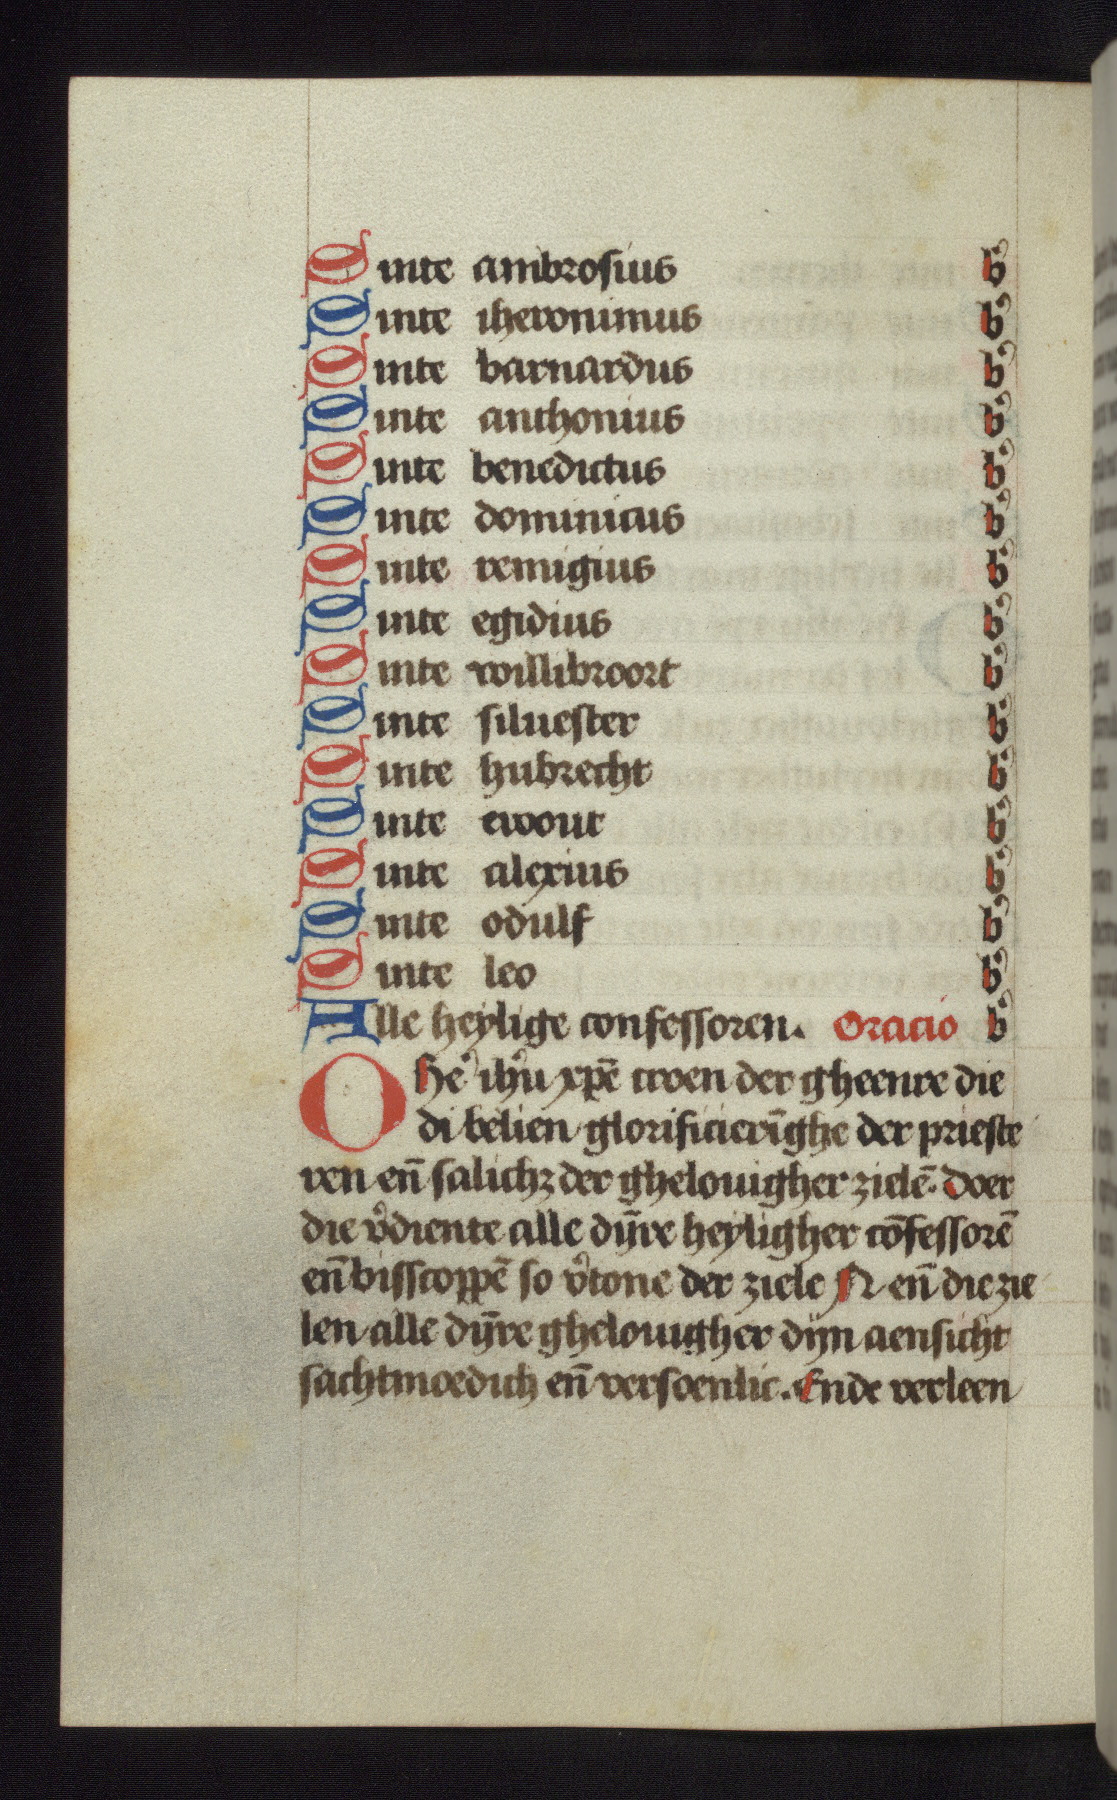 Sinte ambrosius b'
Sinte iheronimus b'
Sinte barnardus b'
Sinte anthonius b'
Sinte benedictus b'
Sinte dominicus b'
Sinte remigius b'
Sinte egidius b'
Sinte willibroort b'
Sinte siluester b'
Sinte hubrecht b'
Sinte ewout b'
Sinte alexius b'
Sinte odulf b'
Sinte leo b'
Alle heylige confessoren. Oracio b'
O he' ihu xpē croen der gheenre die
di belien glorificierīghe der prieste
ren en̄ salichz der ghelouigher zielē. Doer
die v'diente alle dyn̄re heyligher cōfessorē
en̄ bisscoppē so v'tone der ziele N en̄ die zie
len alle dyn̄re ghelouigher dijn aensicht
sachtmoedich en̄ versoenlic. Ende verleen